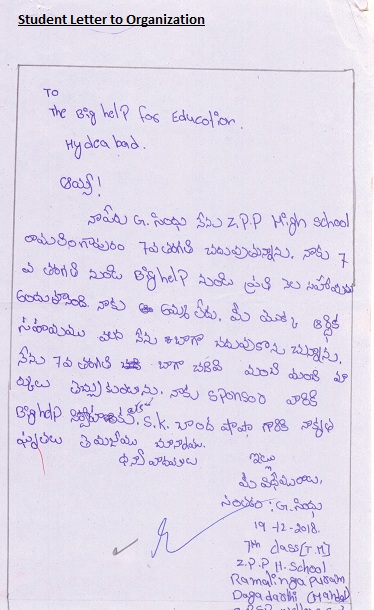 Student Letter to Organization
To
The Big help For Education.
Hydea bad.
అయ్యా!
నాపేరు G. సింధు నేను Z.P.P High school
రామలింగాపురం 7వ తరగతి చదువుతున్నాను. నాకు 7
వ తరగతి నుండి Big help నుండి ప్రతి నెల సహాయము
అందుతోంది. నాకు అమ్మ లేదు. మీ యొక్క ఆర్థిక
సహాయము వలన నేను బాగా చదువుకొను చున్నాను.
నేను 7వ తరగతి బాగా చదివి మంచి మా
ర్కులు తెచ్చుకుంటాను. నాకు sponsor వారికి
Big help S.K. గారికి
ధన్యవాదములు
ఇట్లు
మీ విధేయురాలు,
సంతకం : G. సింధు
19-12-2018.
7th class [T.M]
Z.P.P H. School
Ramalinga puram
Dagadarthi (Mandal)